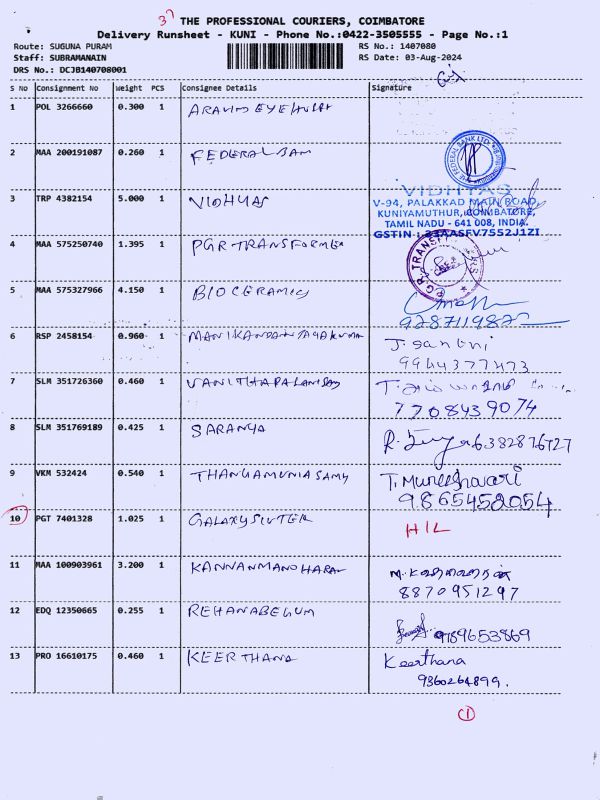 37
THE PROFESSIONAL COURIERS, COIMBATORE
Delivery Runsheet - KUNI - Phone No.:0422-3505555 - Page No.:1
Route: SUGUNA PURAM
RS No.: 1407080
Staff: SUBRAMANAIN
RS Date: 03-Aug-2024
DRS No.: DCJB140708001
S No Consignment No Weight PCS Consignee Details Signature
1 POL 3266660 0.300 1 ARAVIND EYE
2 MAA 200191087 0.260 1 FEDERAL BAN
FEDERAL BANK LTD
3 TRP 4382154 5.000 1 VIDHYAS
VIDHYAS
V-94, PALAKKAD MAIN ROAD,
KUNIYAMUTHUR, COIMBATORE,
TAMIL NADU - 641 008, INDIA.
GSTIN : 33AASFV7552J1ZI
4 MAA 575250740 1.395 1 PGR TRANSFORMER
5 MAA 575327966 4.150 1 BIOCERAMICS
6 RSP 2458154 0.960 1 MANIKANDAN
J. Santhi
9944377473
7 SLM 351726360 0.460 1 VANITHAPALANISAY
7708439074
8 SLM 351769189 0.425 1 SARANYA
6382876727
9 VKM 532424 0.540 1 THANGAMUNIASAMY
T. Muneeshwari
9865452054
10 PGT 7401328 1.025 1 GALAXY SINTER
H/L
11 MAA 100903961 3.200 1 KANNANMANOHARAN
8870951297
12 EDQ 12350665 0.255 1 REHANABEGUM
9789653869
13 PRO 16610175 0.460 1 KEERTHANA
Keerthana
9360264899.
1